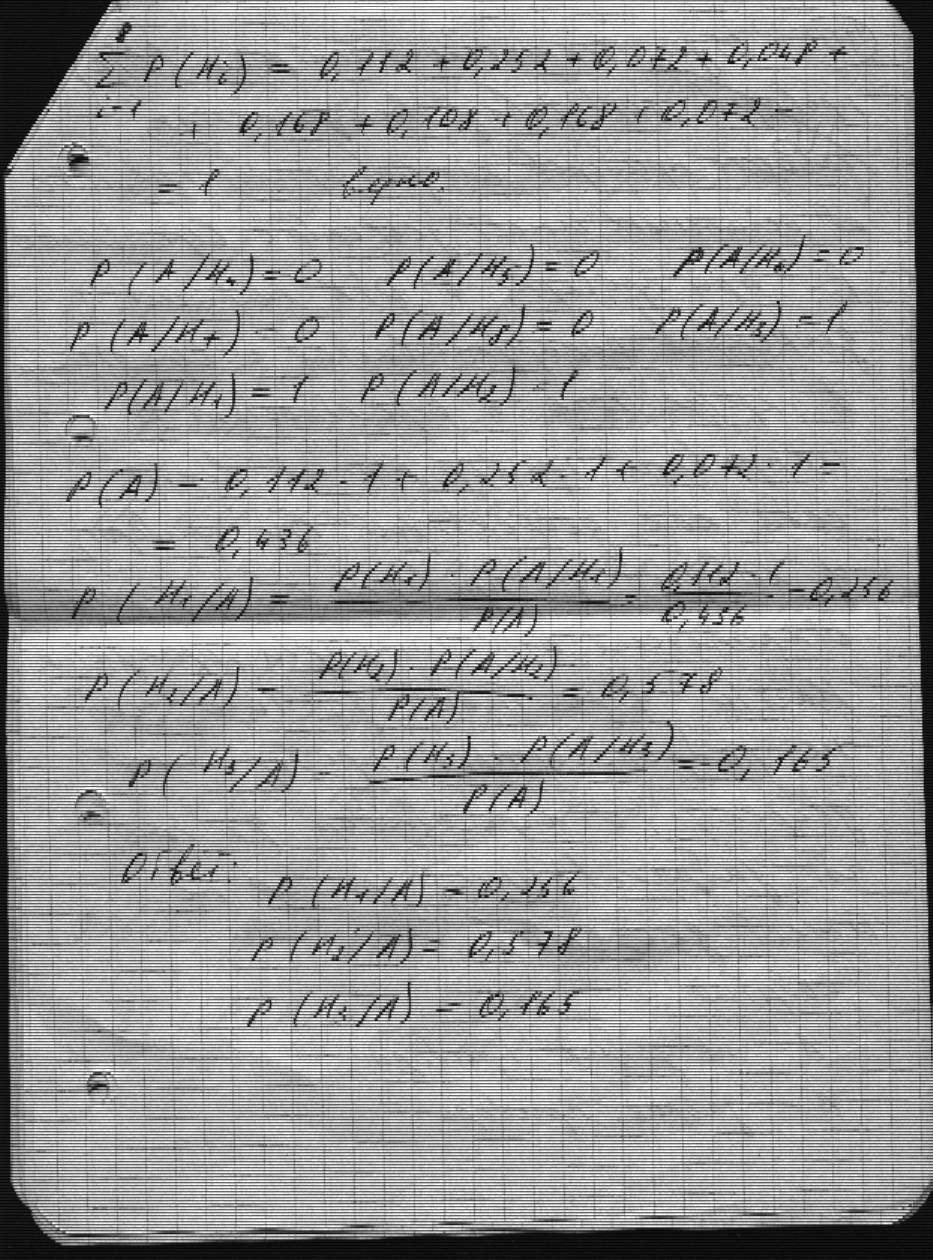 8
∑ P(Hi) = 0,112 + 0,252 + 0,072 + 0,048 +
i=1
+ 0,168 + 0,108 + 0,168 + 0,072 =
= 1 верно.
P(A/H4) = 0 P(A/H5) = 0 P(A/H6) = 0
P(A/H7) = 0 P(A/H8) = 0 P(A/H3) = 1
P(A/H1) = 1 P(A/H2) = 1
P(A) = 0,112 · 1 + 0,252 · 1 + 0,072 · 1 =
= 0,436
P(H1/A) = P(H1) · P(A/H1) / P(A) = 0,112 · 1 / 0,436 = 0,256
P(H2/A) = P(H2) · P(A/H2) / P(A) = 0,578
P(H3/A) = P(H3) · P(A/H3) / P(A) = 0,165
Ответ:
P(H1/A) = 0,256
P(H2/A) = 0,578
P(H3/A) = 0,165